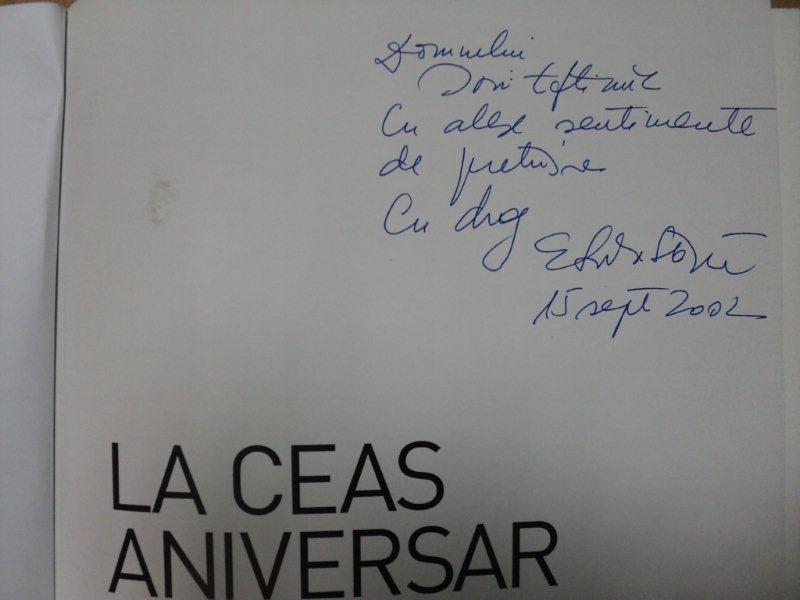 Domnului
Cu alese sentimente
de prețuire
Cu drag
15 sept 2002
LA CEAS
ANIVERSAR